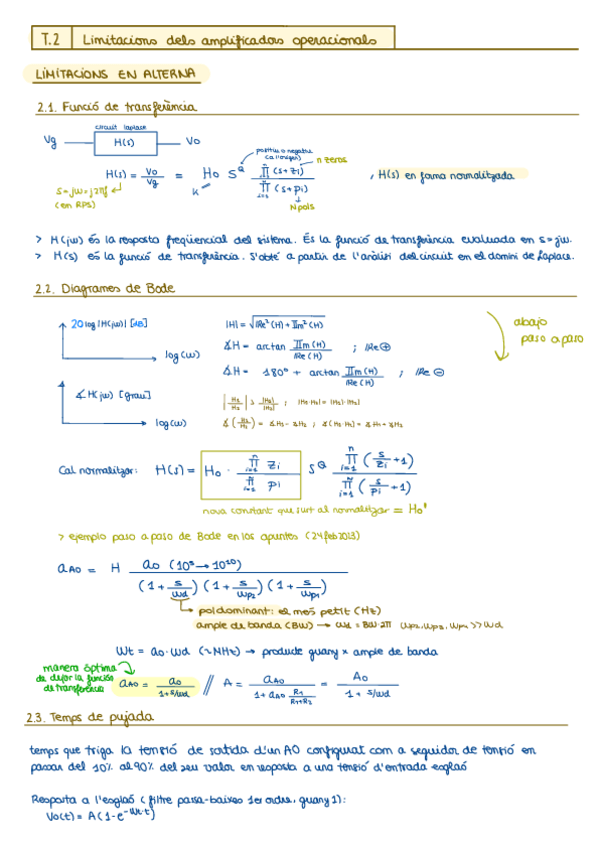 T.2 Limitacions dels amplificadors operacionals
LIMITACIONS EN ALTERNA
2.1. Funció de transferència
circuit laplace
Vg H(s) Vo
positiu o negatiu
(a l'origen)
n zeros
H(s) = Vo/Vg = Ho S^Q ∏(i=1..n) (s+zi) / ∏(i=1..ñ) (s+pi) , H(s) en forma normalitzada
K
s=jω=j2πf
(en RPS)
N pols
> H(jω) és la resposta freqüencial del sistema. És la funció de transferència evaluada en s=jω.
> H(s) és la funció de transferència. S'obté a partir de l'anàlisi del circuit en el domini de Laplace.
2.2. Diagrames de Bode
20log|H(jω)| [dB]
log(ω)
∡H(jω) [grau]
log(ω)
|H| = √(IRe²(H) + IIm²(H))
∡H = arctan IIm(H)/IRe(H) ; IRe ⊕
∡H = 180° + arctan IIm(H)/IRe(H) ; IRe ⊖
|H1/H2| = |H1|/|H2| ; |H1·H2| = |H1|·|H2|
∡(H1/H2) = ∡H1 - ∡H2 ; ∡(H1·H2) = ∡H1 + ∡H2
abajo
paso a paso
Cal normalitzar: H(s) = Ho · ∏(i=1..n) zi / ∏(i=1..ñ) pi S^Q ∏(i=1..n) (s/zi +1) / ∏(i=1..ñ) (s/pi +1)
nova constant que surt al normalitzar = Ho'
> ejemplo paso a paso de Bode en los apuntes (24feb2023)
aAO = H ao (10⁵→10²⁰) / (1 + s/ωd)(1 + s/ωp2)(1 + s/ωp1)
pol dominant: el més petit (Hz)
ample de banda (BW) → ωd = BW·2π ωp2, ωp3, ωp1 >> ωd
Wt = ao·ωd (~MHz) → producte guany × ample de banda
manera óptima
de dejar la función
de transferència
aAO = ao / (1+s/ωd) // A = aAO / (1+aAO R1/(R1+R2)) = Ao / (1 + s/ωd)
2.3. Temps de pujada
temps que triga la tensió de sortida d'un AO configurat com a seguidor de tensió en
passar del 10% al 90% del seu valor en resposta a una tensió d'entrada esglaó
Resposta a l'esglaó (filtre passa-baixes 1er ordre, guany 1):
Vo(t) = A(1-e^(-Wt·t))